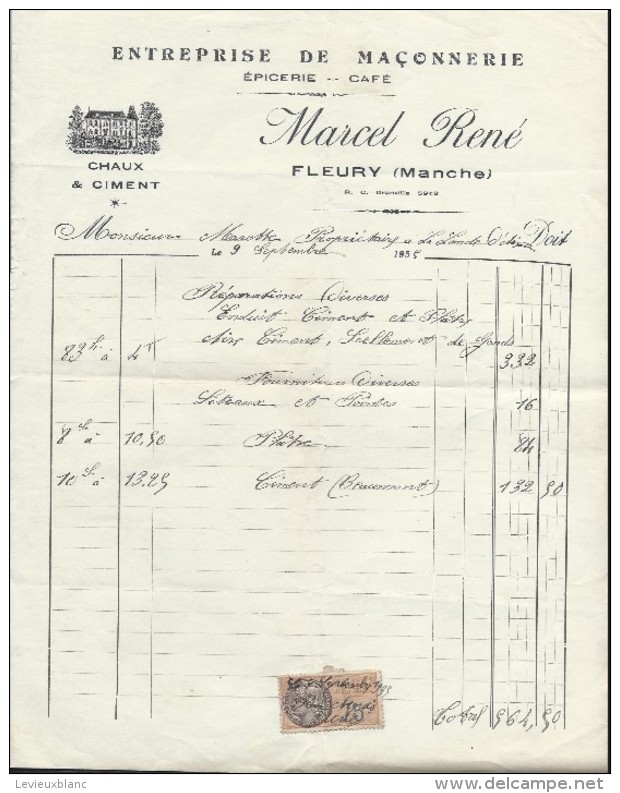 ENTREPRISE DE MAÇONNERIE
ÉPICERIE -- CAFÉ
Marcel René
CHAUX
& CIMENT
FLEURY (Manche)
R. C. Granville 5913
Monsieur Marotte Propriétaire à La Lande Doit
Le 9 Septembre 1935
Réparations Diverses
Enduit Ciment et Plâtre
83 h à 4f Aire Ciment, Scellement de Gonds 332
Fournitures Diverses
Liteaux et Pointes 16
8 s à 10,50 Plâtre 84
10 s à 13.25 Ciment (Beaumont) 132 50
Total 564,50
Levieuxblanc
delcampe.net